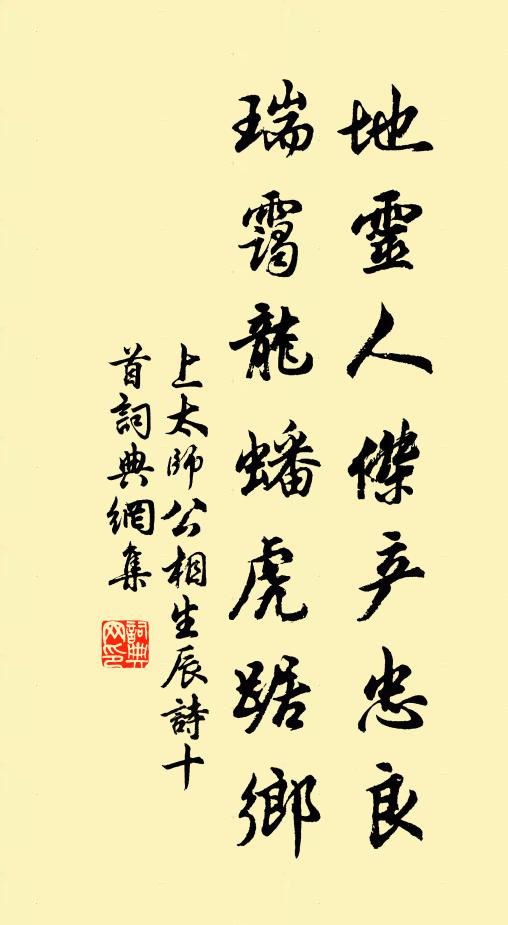 地靈人傑产忠良
瑞靄龍蟠虎踞鄉
上太師公相生辰詩十
首詞典網集
詞典
网印